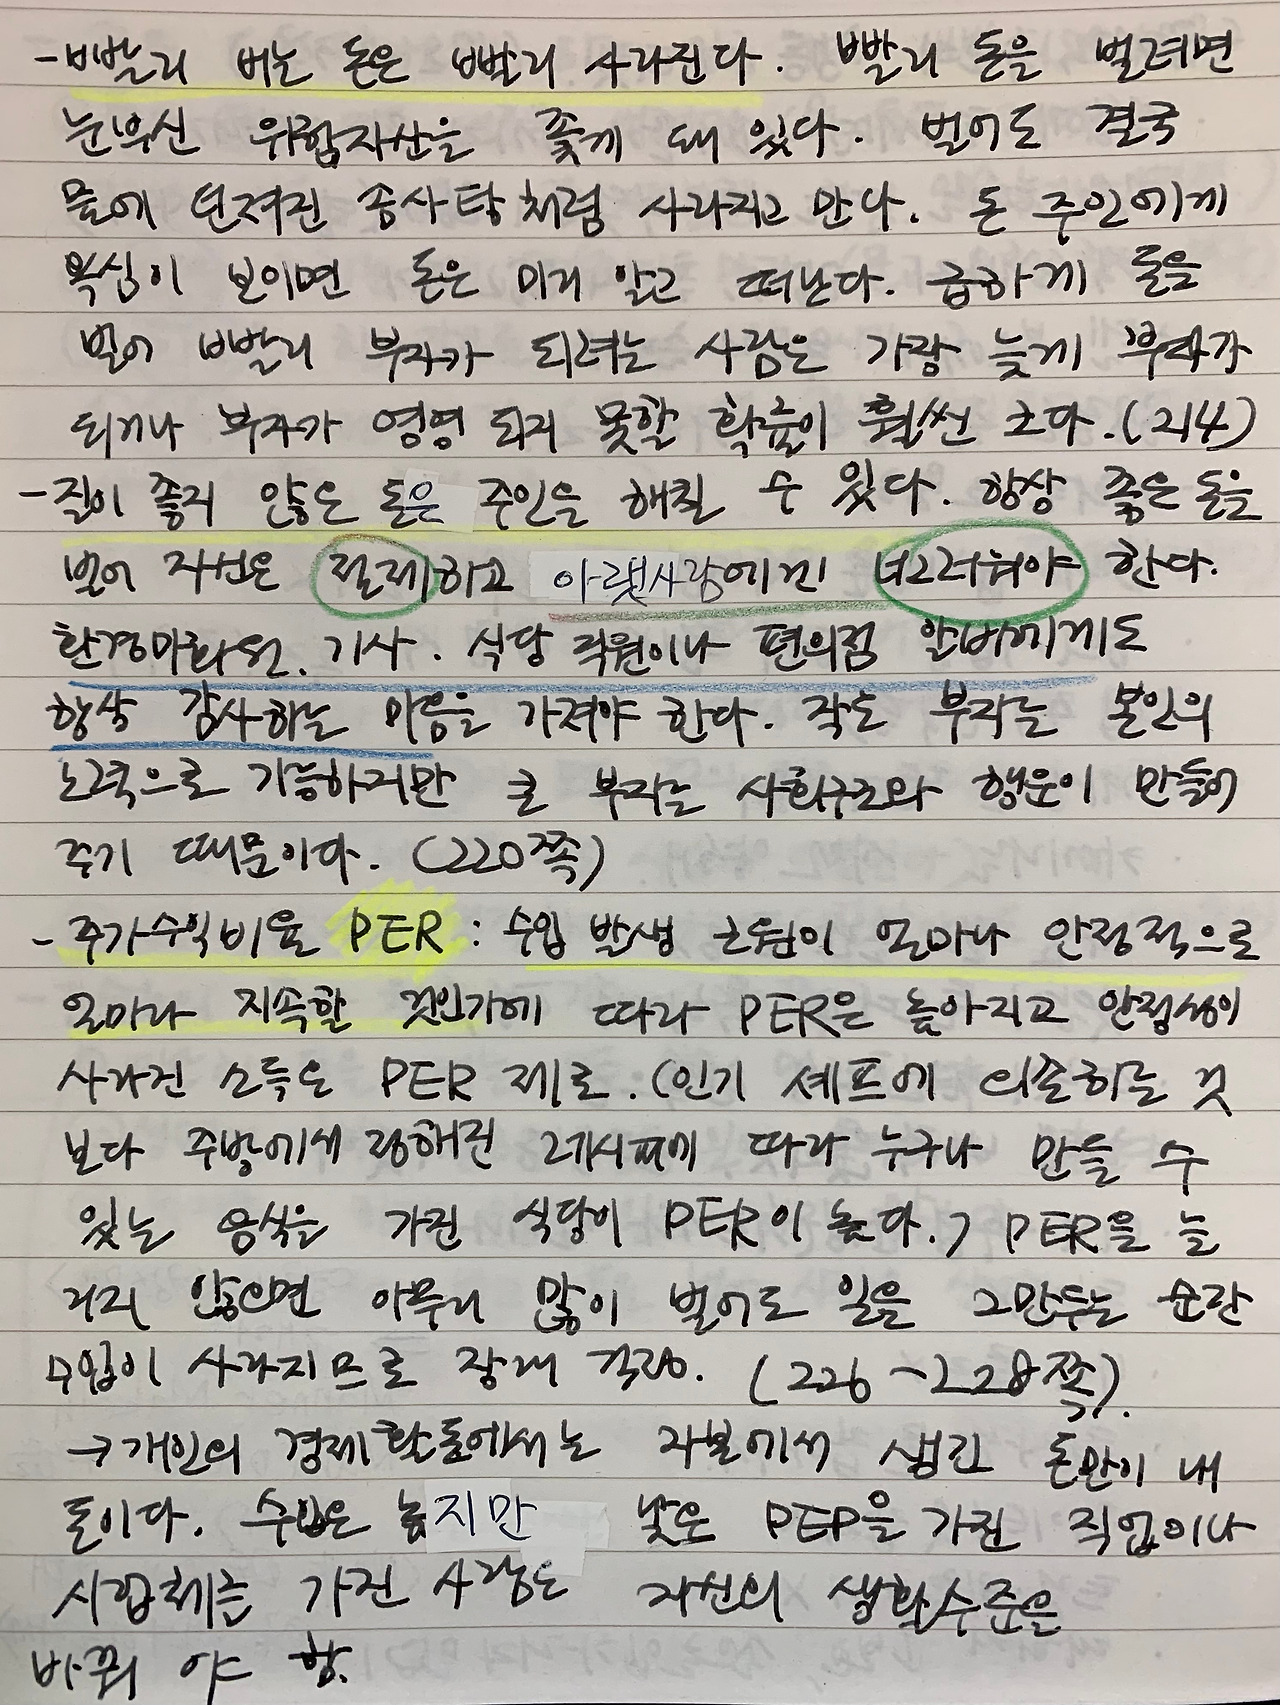 - 빨리 버는 돈은 빨리 사라진다. 빨리 돈을 벌려면
눈부신 위험자산을 쫓게 돼 있다. 벌어도 결국
물에 던져진 솜사탕처럼 사라지고 만다. 돈 주인에게
욕심이 보이면 돈은 미리 알고 떠난다. 급하게 돈을
벌어 빨리 부자가 되려는 사람은 가장 늦게 부자가
되거나 부자가 영영 되지 못할 확률이 훨씬 크다. (214)
- 질이 좋지 않은 돈은 주인을 해칠 수 있다. 항상 좋은 돈을
벌어 자신은 절제하고 아랫사람에겐 너그러워야 한다.
환경미화원, 기사, 식당 직원이나 편의점 알바에게도
항상 감사하는 마음을 가져야 한다. 작은 부자는 본인의
노력으로 가능하지만 큰 부자는 사회구조와 행운이 만들어
주기 때문이다. (220쪽)
- 주가수익비율 PER : 수입 발생 근원이 얼마나 안정적으로
얼마나 지속할 것인가에 따라 PER은 높아지고 안정성이
사라진 소득은 PER 제로. (인기 셰프에 의존하는 것
보다 주방에서 정해진 레시피에 따라 누구나 만들 수
있는 음식을 가진 식당이 PER이 높다.) PER을 늘
리지 않으면 아무리 많이 벌어도 일을 그만두는 순간
수입이 사라지므로 장래 걱정. (226-228쪽).
→ 개인의 경제활동에서는 자본에서 생긴 돈만이 내
돈이다. 수입은 높지만 낮은 PER을 가진 직업이나
사업체를 가진 사람은 자신의 생활수준을
바꿔 야 함.